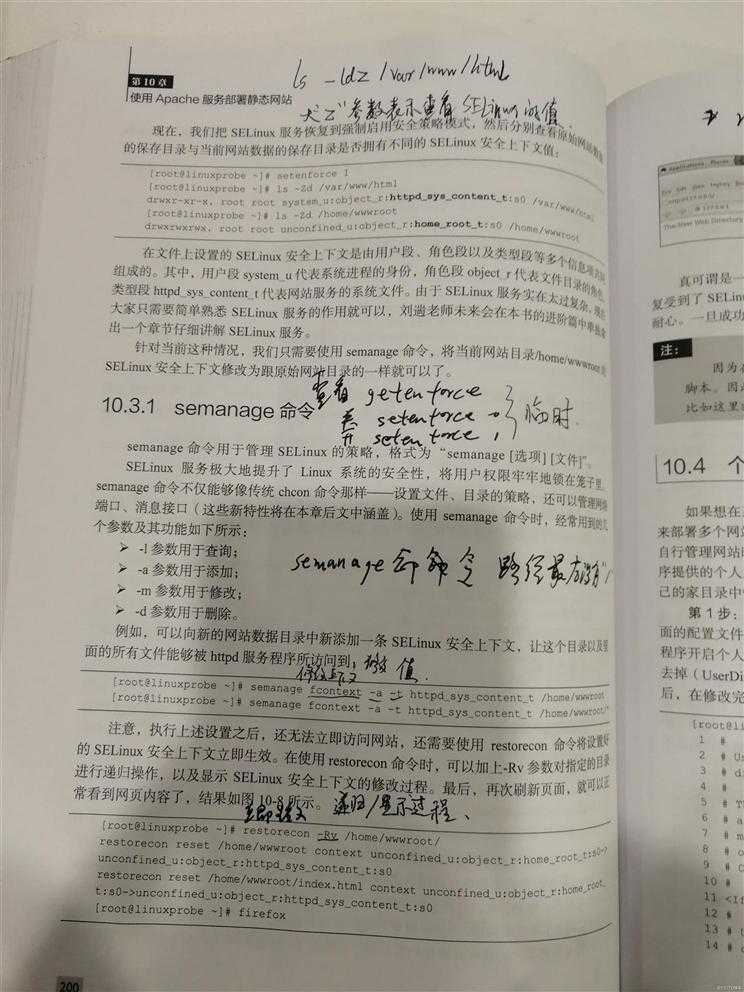 ls -ldZ /var/www/html
第10章
使用 Apache 服务部署静态网站
"Z"参数表示查看 SELinux 的值.
现在，我们把 SELinux 服务恢复到强制启用安全策略模式，然后分别查看原始网站
的保存目录与当前网站数据的保存目录是否拥有不同的 SELinux 安全上下文值：
[root@linuxprobe ~]# setenforce 1
[root@linuxprobe ~]# ls -Zd /var/www/html
drwxr-xr-x. root root system_u:object_r:httpd_sys_content_t:s0 /var/www/html
[root@linuxprobe ~]# ls -Zd /home/wwwroot
drwxrwxrwx. root root unconfined_u:object_r:home_root_t:s0 /home/wwwroot
在文件上设置的 SELinux 安全上下文是由用户段、角色段以及类型段等多个信息项共同
组成的。其中，用户段 system_u 代表系统进程的身份，角色段 object_r 代表文件目录的角色，
类型段 httpd_sys_content_t 代表网站服务的系统文件。由于 SELinux 服务实在太过复杂，现在
大家只需要简单熟悉 SELinux 服务的作用就可以，刘遄老师未来会在本书的进阶篇中单独拿
出一个章节仔细讲解 SELinux 服务。
针对当前这种情况，我们只需要使用 semanage 命令，将当前网站目录/home/wwwroot 的
SELinux 安全上下文修改为跟原始网站目录的一样就可以了。
查看 getenforce
10.3.1 semanage 命令
关 setenforce 0
开 setenforce 1
临时.
semanage 命令用于管理 SELinux 的策略，格式为“semanage [选项] [文件]”。
SELinux 服务极大地提升了 Linux 系统的安全性，将用户权限牢牢地锁在笼子里。
semanage 命令不仅能够像传统 chcon 命令那样——设置文件、目录的策略，还可以管理网络
端口、消息接口（这些新特性将在本章后文中涵盖）。使用 semanage 命令时，经常用到的几
个参数及其功能如下所示：
➢ -l 参数用于查询；
➢ -a 参数用于添加；
➢ -m 参数用于修改；
➢ -d 参数用于删除。
semanage 命令 路径最后
例如，可以向新的网站数据目录中新添加一条 SELinux 安全上下文，让这个目录以及里
面的所有文件能够被 httpd 服务程序所访问到：
值.
[root@linuxprobe ~]# semanage fcontext -a -t httpd_sys_content_t /home/wwwroot
[root@linuxprobe ~]# semanage fcontext -a -t httpd_sys_content_t /home/wwwroot/*
注意，执行上述设置之后，还无法立即访问网站，还需要使用 restorecon 命令将设置好
的 SELinux 安全上下文立即生效。在使用 restorecon 命令时，可以加上-Rv 参数对指定的目录
进行递归操作，以及显示 SELinux 安全上下文的修改过程。最后，再次刷新页面，就可以正
常看到网页内容了，结果如图 10-8 所示。
递归/显示过程、
[root@linuxprobe ~]# restorecon -Rv /home/wwwroot/
restorecon reset /home/wwwroot context unconfined_u:object_r:home_root_t:s0->
unconfined_u:object_r:httpd_sys_content_t:s0
restorecon reset /home/wwwroot/index.html context unconfined_u:object_r:home_root_
t:s0->unconfined_u:object_r:httpd_sys_content_t:s0
[root@linuxprobe ~]# firefox
200
Applications Places
The User Web Directory
真可谓是一
复受到了 SELin
耐心。一旦成功
注：
因为在
脚本。因此
比如这里
10.4 个
如果想在
来部署多个网站
自行管理网站
序提供的个人
己的家目录中
第 1 步：
面的配置文件
程序开启个人
去掉（UserDi
后，在修改完
[root@li
1 #
2 # U
3 # di
4 #
5 # T
6 # a
7 # m
8 # o
9 # C
10 #
11 <If
12 #
13 # t
14 # c